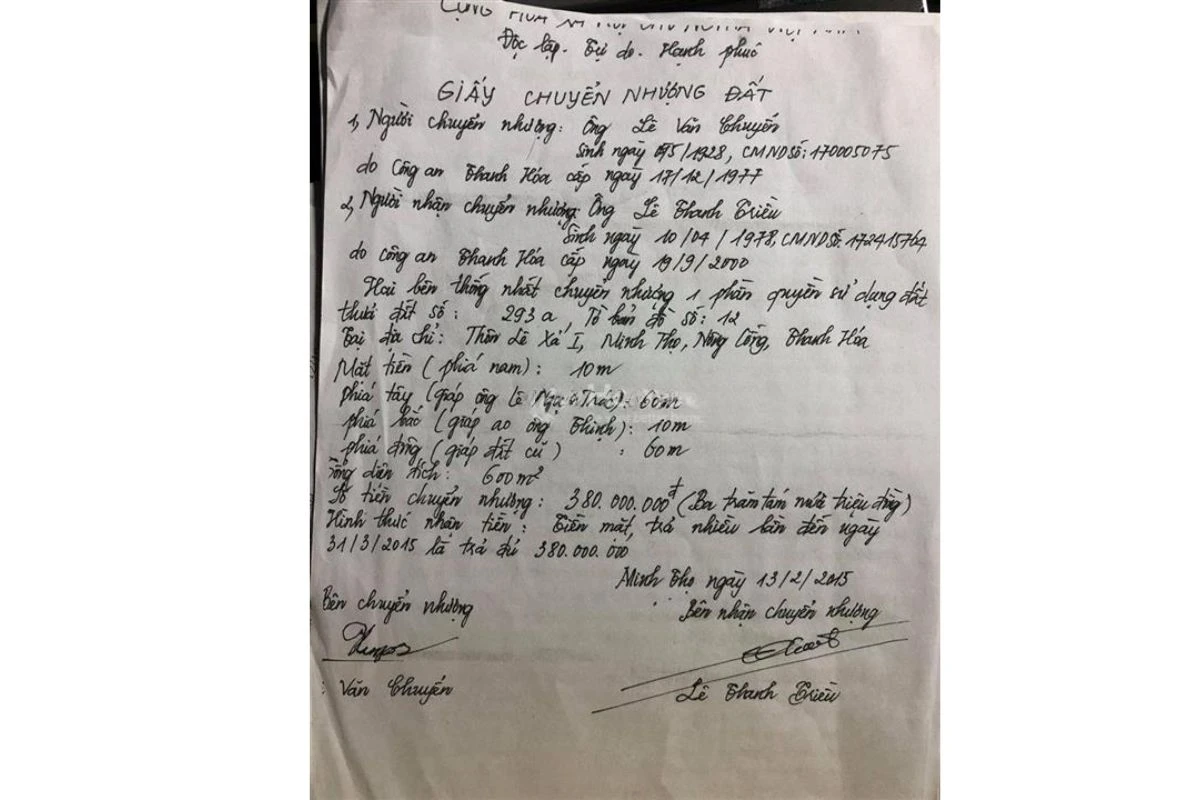 CỘNG HÒA XÃ HỘI CHỦ NGHĨA VIỆT NAM
Độc lập - Tự do - Hạnh phúc
GIẤY CHUYỂN NHƯỢNG ĐẤT
1, Người chuyển nhượng: Ông Lê Văn Chuyến
Sinh ngày /1928, CMND Số: 170005075
do Công an Thanh Hóa cấp ngày 17/12/1977
2, Người nhận chuyển nhượng: Ông Lê Thanh Triều
Sinh ngày 10/04/1978, CMND Số: 172415764
do công an Thanh Hóa cấp ngày 19/9/2000
Hai bên thống nhất chuyển nhượng 1 phần quyền sử dụng đất
thửa đất số: 293a, Tờ bản đồ số: 12
Tại địa chỉ: Thôn Lê Xá I, Minh Thọ, Nông Cống, Thanh Hóa
Mặt tiền (phía nam): 10m
phía tây (giáp ông Lê Ngọc): 60m
phía bắc (giáp ao ông Thịnh): 10m
phía đông (giáp đất cũ) : 60m
Tổng diện tích: 600m²
Số tiền chuyển nhượng: 380.000.000đ (Ba trăm tám mươi triệu đồng)
Hình thức nhận tiền: Tiền mặt, trả nhiều lần đến ngày
31/3/2015 là trả đủ 380.000.000
Minh Thọ ngày 13/2/2015
Bên chuyển nhượng
Bên nhận chuyển nhượng
Văn Chuyến
Lê Thanh Triều